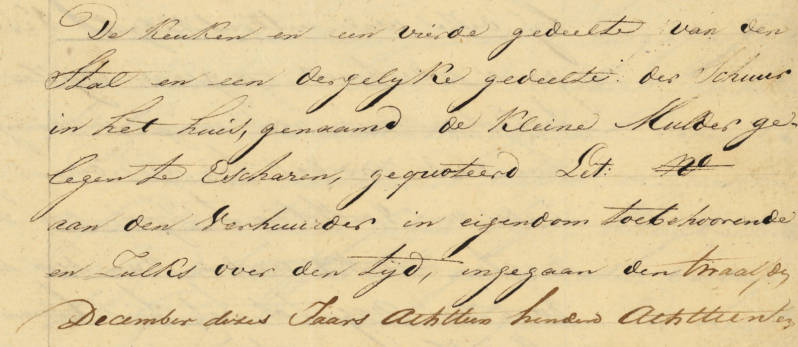 De Keuken en een vierde gedeelte van den
Stal en een dergelyke gedeelte der Schuur
in het huis, genaamd de Kleine Mulder ge-
legen te Escharen, gequoteerd Lit:
aan den Verhuurder in eigendom toebehoorende
en Zulks over den tijd, ingegaan den
December dezes Jaars Achttien honderd Achttien